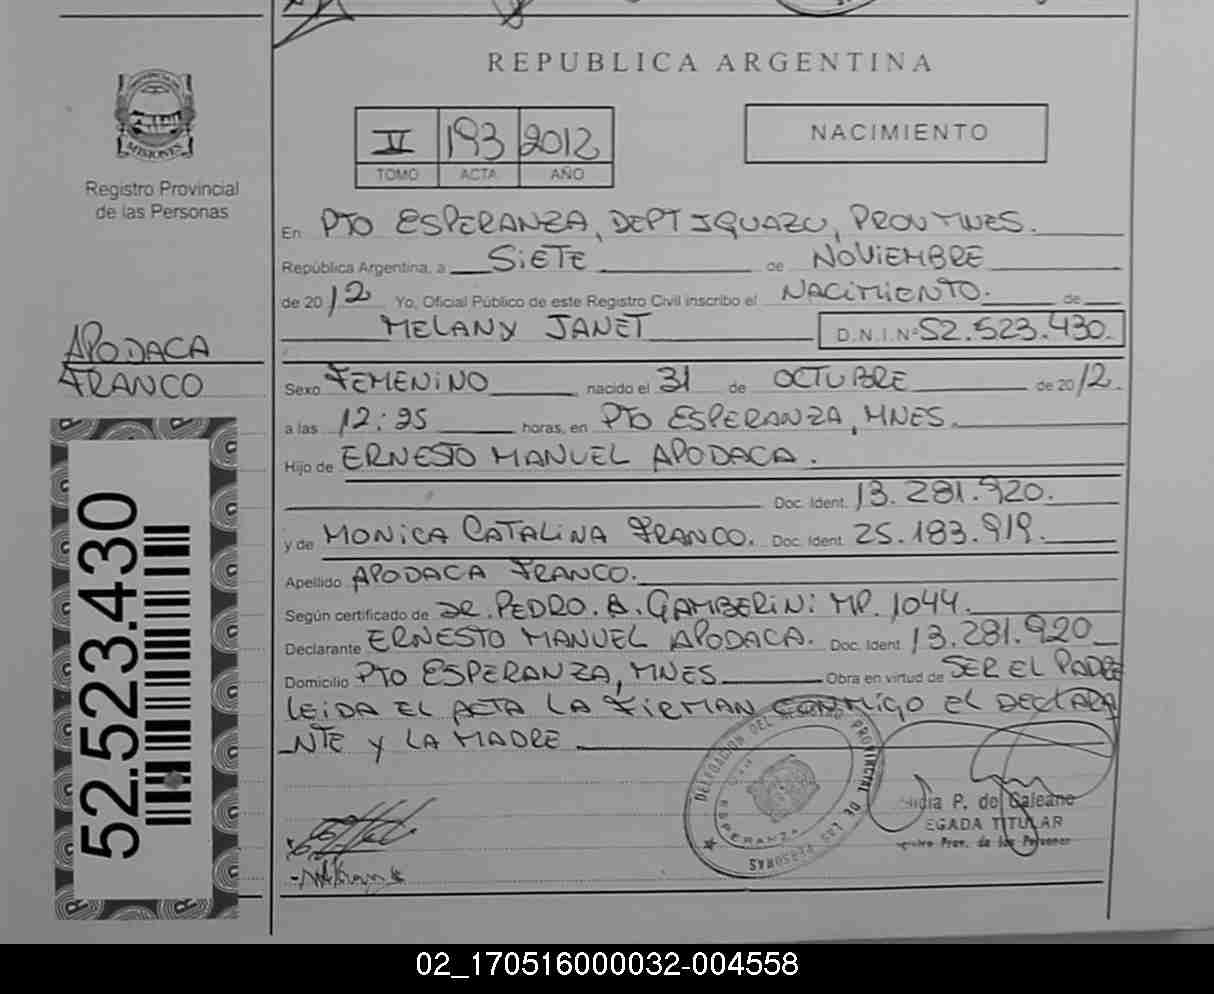 MISIONES
Registro Provincial
de las Personas
REPUBLICA ARGENTINA
II 193 2012
TOMO ACTA AÑO
NACIMIENTO
En PTO ESPERANZA, DEPT IGUAZU, PROV MNES.
República Argentina, a SIETE de NOVIEMBRE
de 2012 Yo, Oficial Público de este Registro Civil inscribo el NACIMIENTO. de
MELANY JANET D.N.I.Nº 52.523.430.
APODACA
FRANCO
Sexo FEMENINO, nacido el 31 de OCTUBRE de 2012.
a las horas, en PTO ESPERANZA, MNES.
Hijo de ERNESTO MANUEL APODACA.
Doc. Ident. 13.281.920.
y de MONICA CATALINA FRANCO. Doc. Ident. 25.183.919.
Apellido APODACA FRANCO.
Según certificado de DR. PEDRO. A. GAMBERINI MP. 1044.
Declarante ERNESTO MANUEL APODACA. Doc. Ident 13.281.920
Domicilio PTO ESPERANZA, MNES Obra en virtud de SER EL PADRE
LEIDA EL ACTA LA FIRMAN CONMIGO EL DECLARA
NTE Y LA MADRE
52.523.430
DELEGACION DEL REGISTRO PROVINCIAL DE LAS PERSONAS
ESPERANZA
P. de Galeano
EGADA TITULAR
Prov. de las Personas
02_170516000032-004558